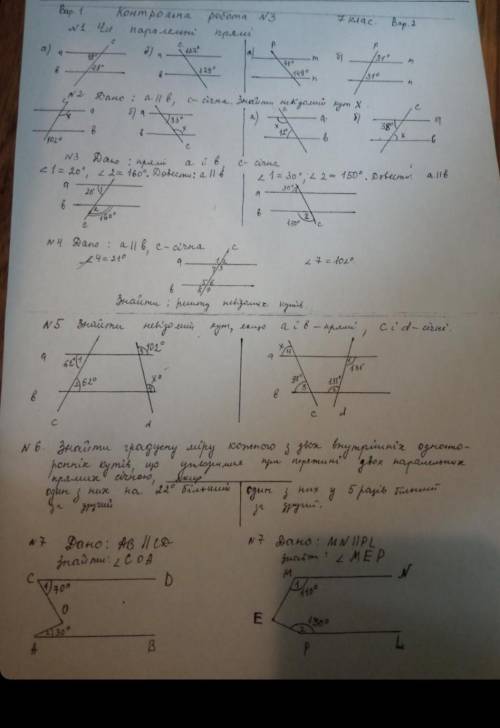 Вар. 1 Контрольна робота №3 7 клас. Вар. 2
№1 Чи паралельні прямі
а) б) а) б)
№2 Дано: a||b, c - січна. Знайти невідомий кут X.
а) б) 33° а) б) 38°
102°
№3 Дано: прямі a і b, c - січна
∠1=20°, ∠2=160°. Довести: a||b ∠1=30°, ∠2=150°. Довести: a||b
20° 30°
160° 150°
№4 Дано: a||b, c - січна
∠4=21° ∠7=102°
Знайти: решту невідомих кутів
№5 Знайти невідомий кут, якщо a і b - прямі, c і d - січні.
62° 102° x°
62°
№6. Знайти градусну міру кожного з двох внутрішніх односто-
ронніх кутів, що утворилися при перетині двох паралельних
прямих січною, якщо
один з них на 22° більший один з них у 5 разів більший
за другий за другий.
№7 Дано: AB||CD №7 Дано: MN||PL
Знайти: ∠COA знайти: ∠MEP
C 1 70° D M 1 110° N
O E
A 2 30° B P 2 130° L